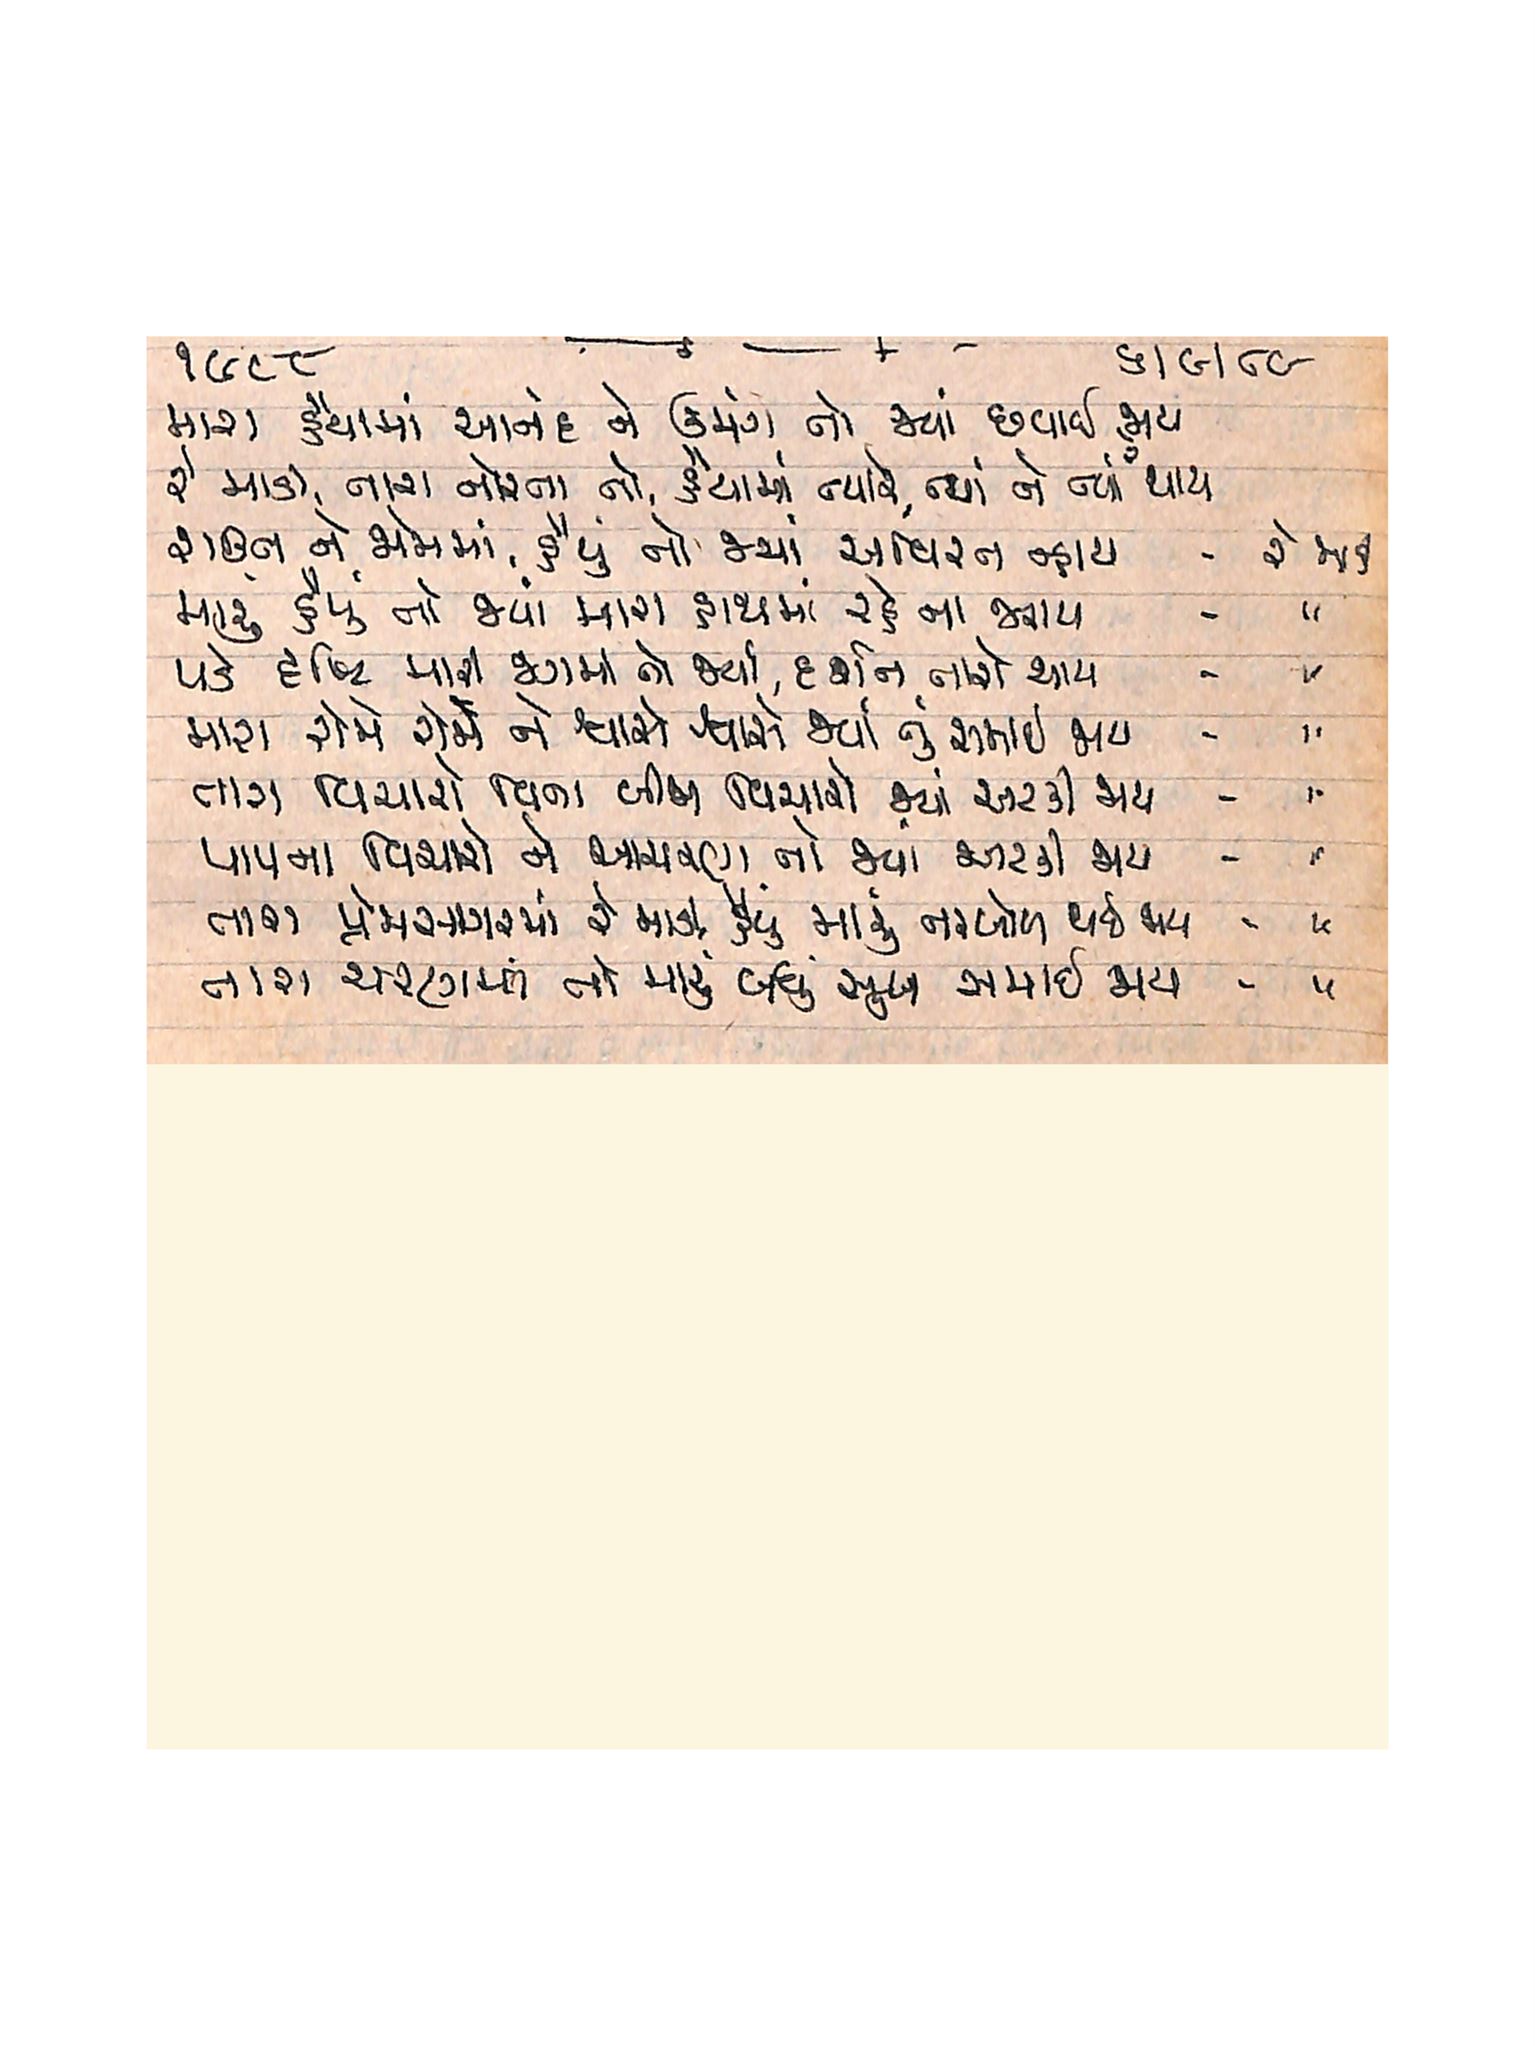 ૧૯૯૮ ૬।૯।૮૯
મારા હૈયામાં આનંદ ને ઉમંગ તો જ્યાં છવાઈ જાય
રે માડી, તારા નોરતા તો, હૈયામાં ત્યારે, ત્યાં ને ત્યાં થાય
ને પ્રેમમાં, હૈયું તો જ્યાં અવિરત ન્હાય - રે માડી
મારું હૈયું તો જ્યાં મારા હાથમાં રહે ના જરાય - "
પડે દૃષ્ટિ મારી જગમાં તો જ્યાં, દર્શન તારો થાય - "
મારા રોમે રોમે ને શ્વાસે શ્વાસે જ્યાં તું સમાઈ જાય - "
તારા વિચારો વિના બીજા વિચારો જ્યાં અટકી જાય - "
પાપના વિચારો ને આચરણ તો જ્યાં અટકી જાય - "
તારા પ્રેમસાગરમાં રે માડી, હૈયું મારું તરબોળ થઈ જાય - "
તારા ચરણમાં તો મારું બધું સુખ સમાઈ જાય - "